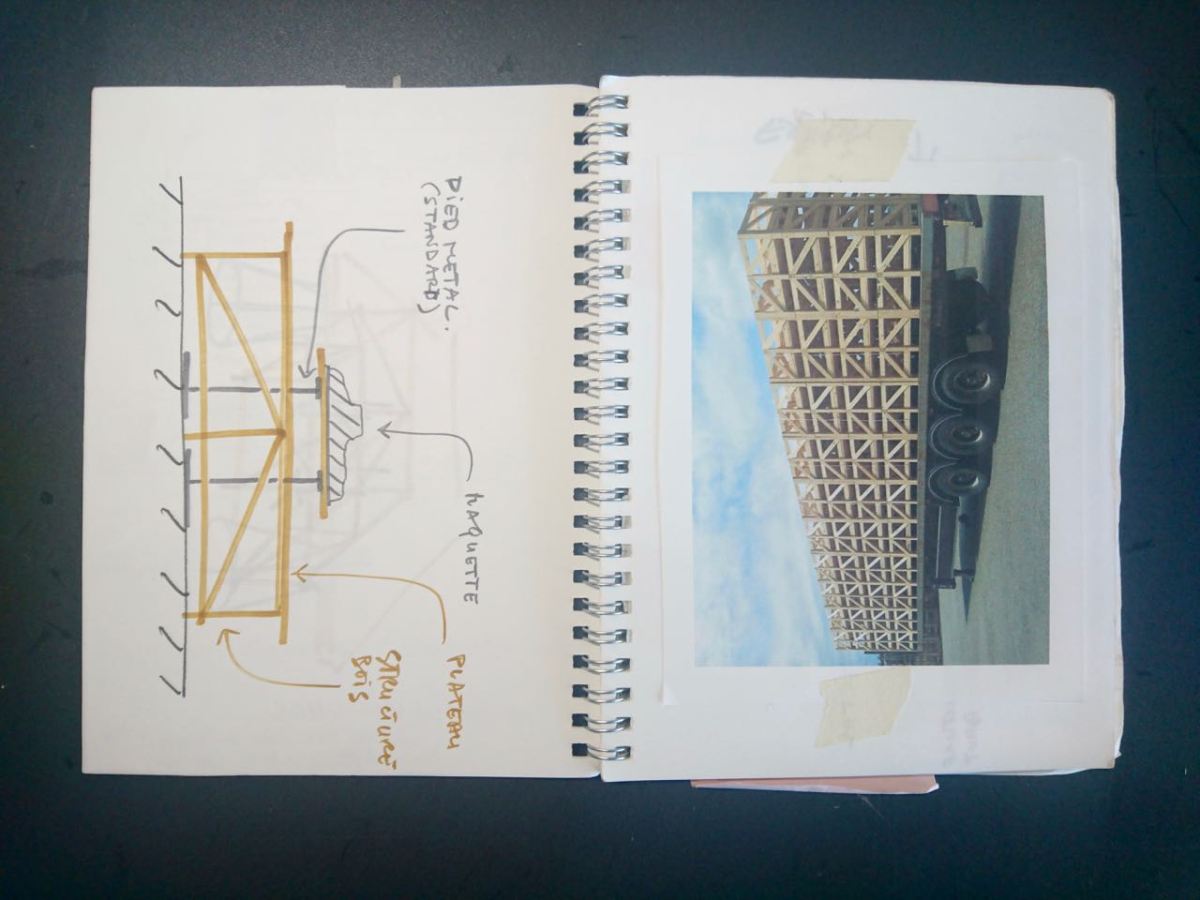 PIED METAL.
(STANDARD)
MAQUETTE
PLATEAU
STRUCTURE
BOIS